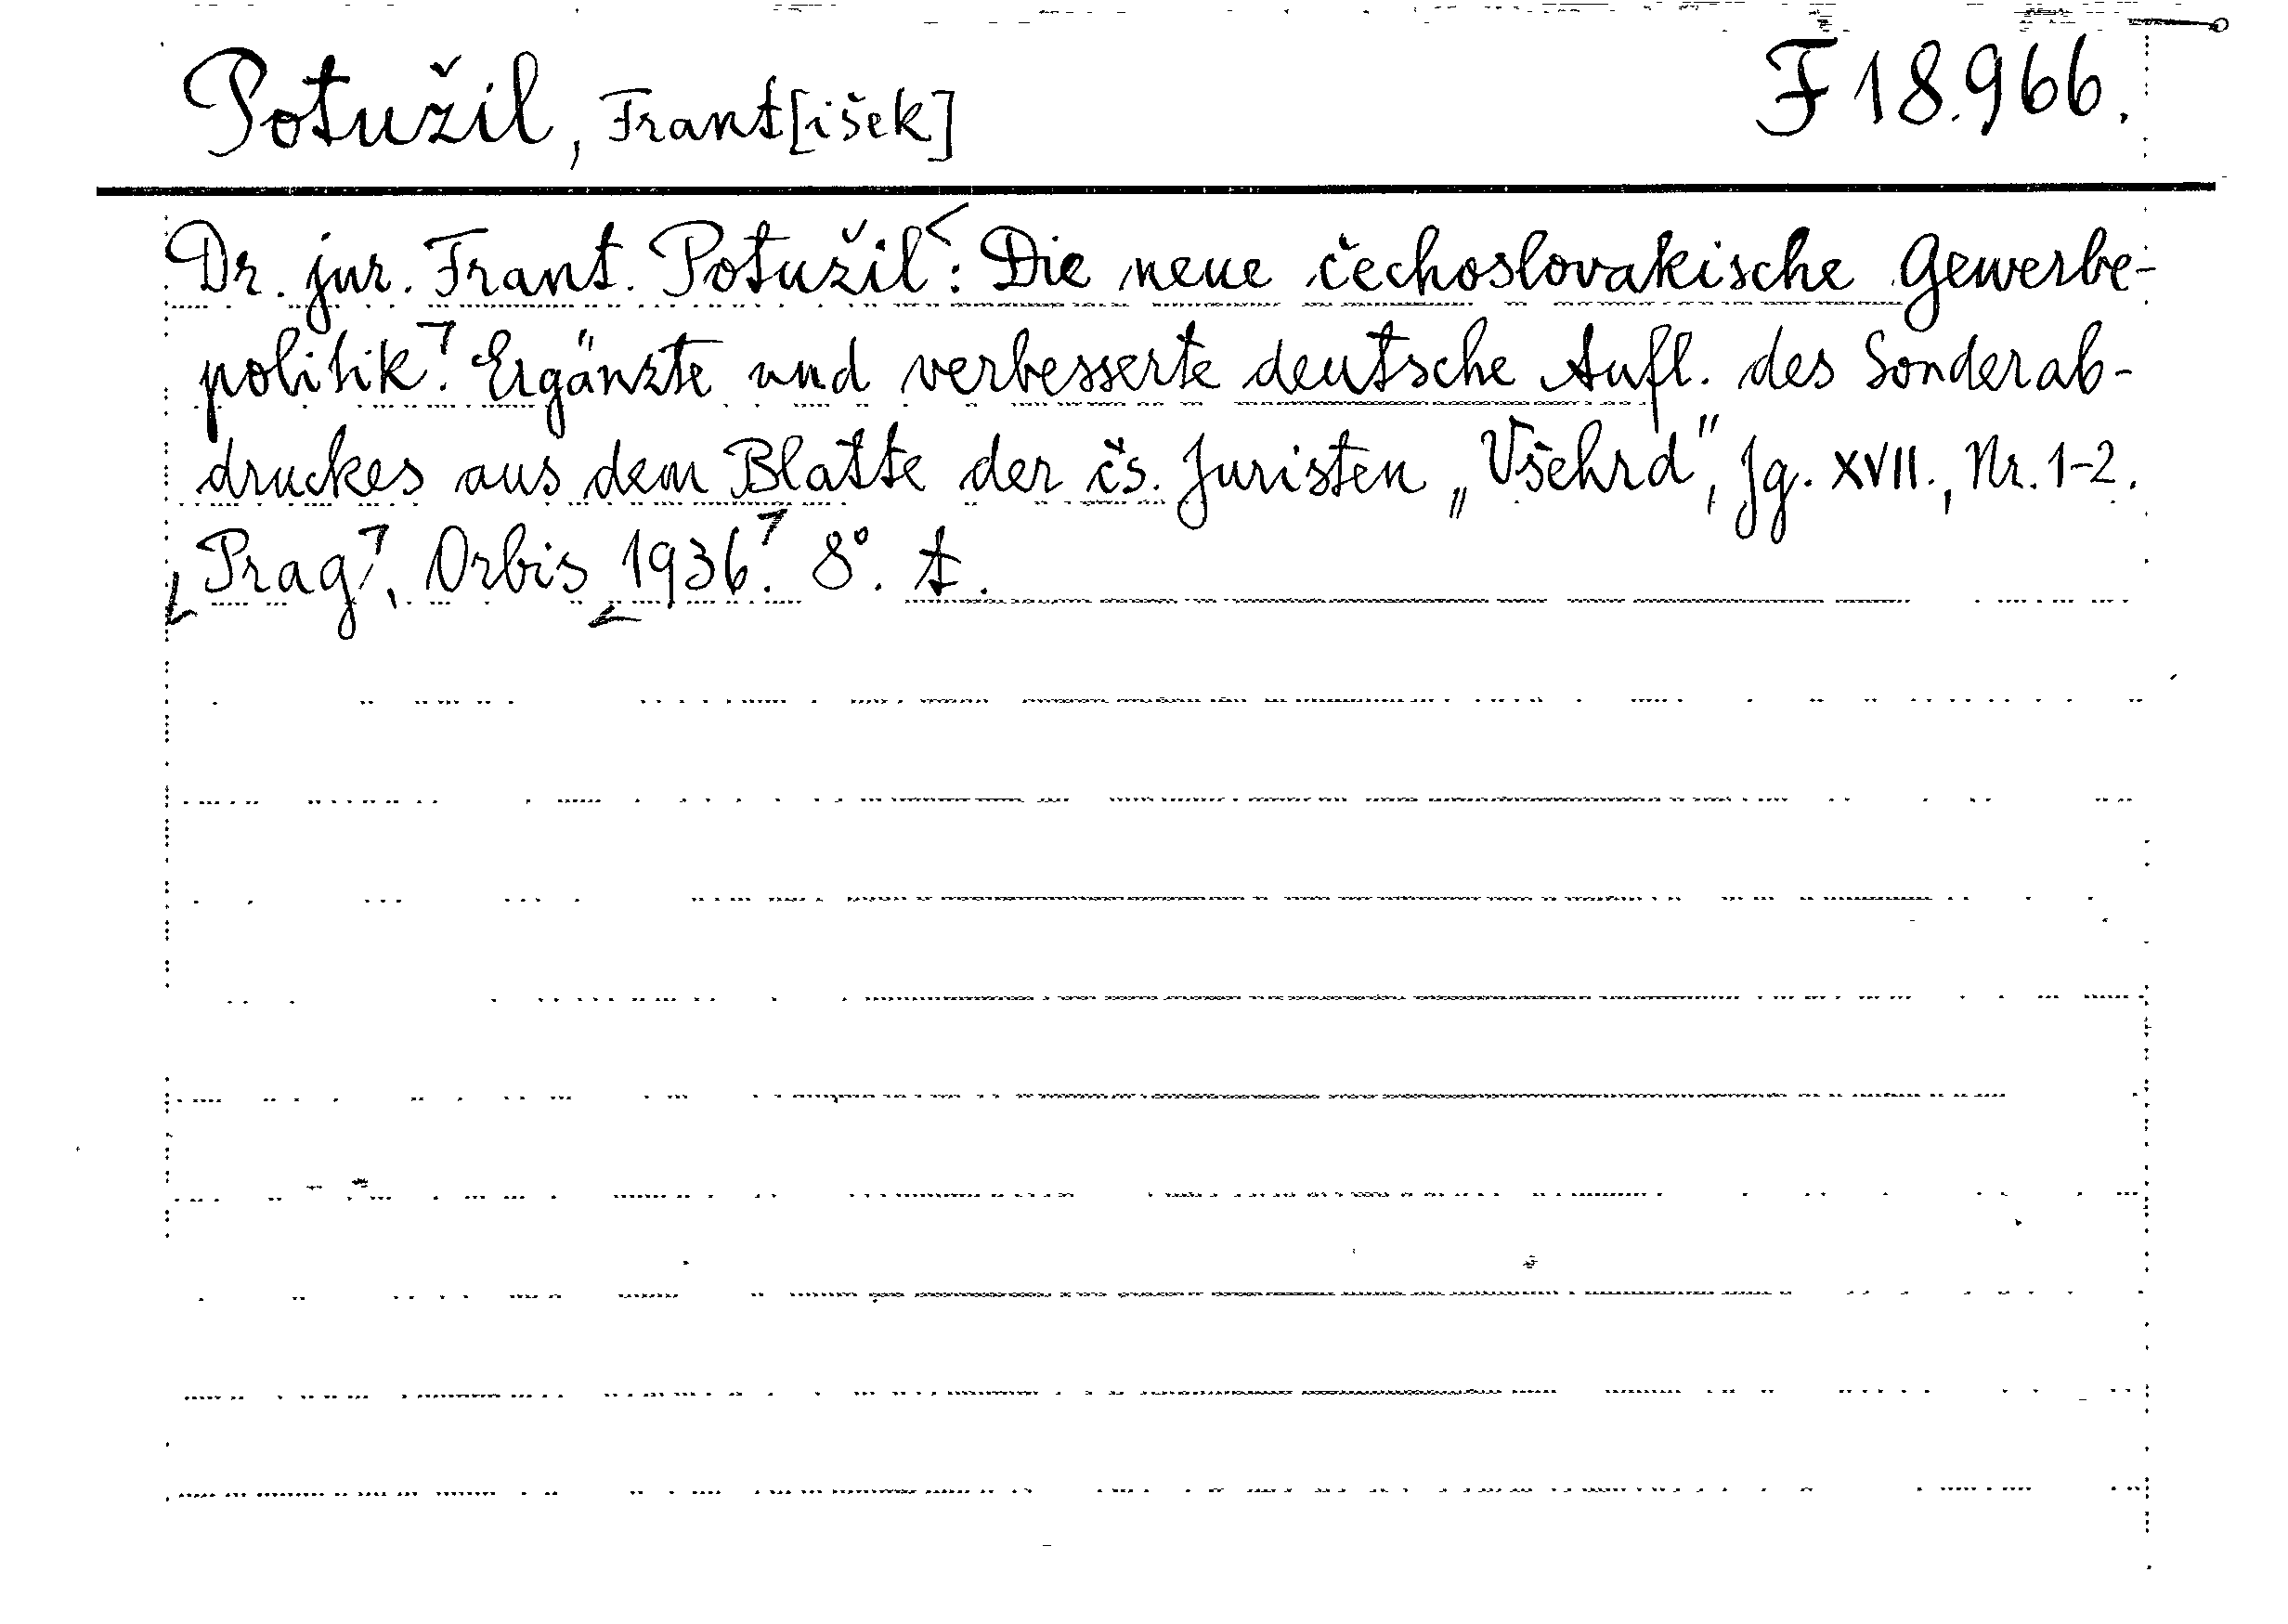 Potužil, Frant[išek] F 18.966.
Dr. jur. Frant. Potužil: Die neue čechoslovakische Gewerbe-
politik. Ergänzte und verbesserte deutsche Aufl. des Sonderab-
druckes aus dem Blatte der čs. Juristen „Všehrd", Jg. XVII., Nr. 1-2.
Prag, Orbis 1936. 8°. A.